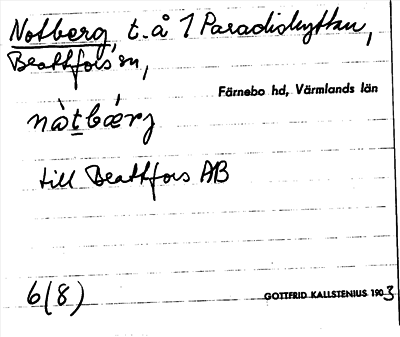 Notberg, t.å 1 Paradishyttan,
Beattfors sn,
Färnebo hd, Värmlands län
nòtbærj
till Beattfors AB
6(8)
GOTTFRID KALLSTENIUS 1903